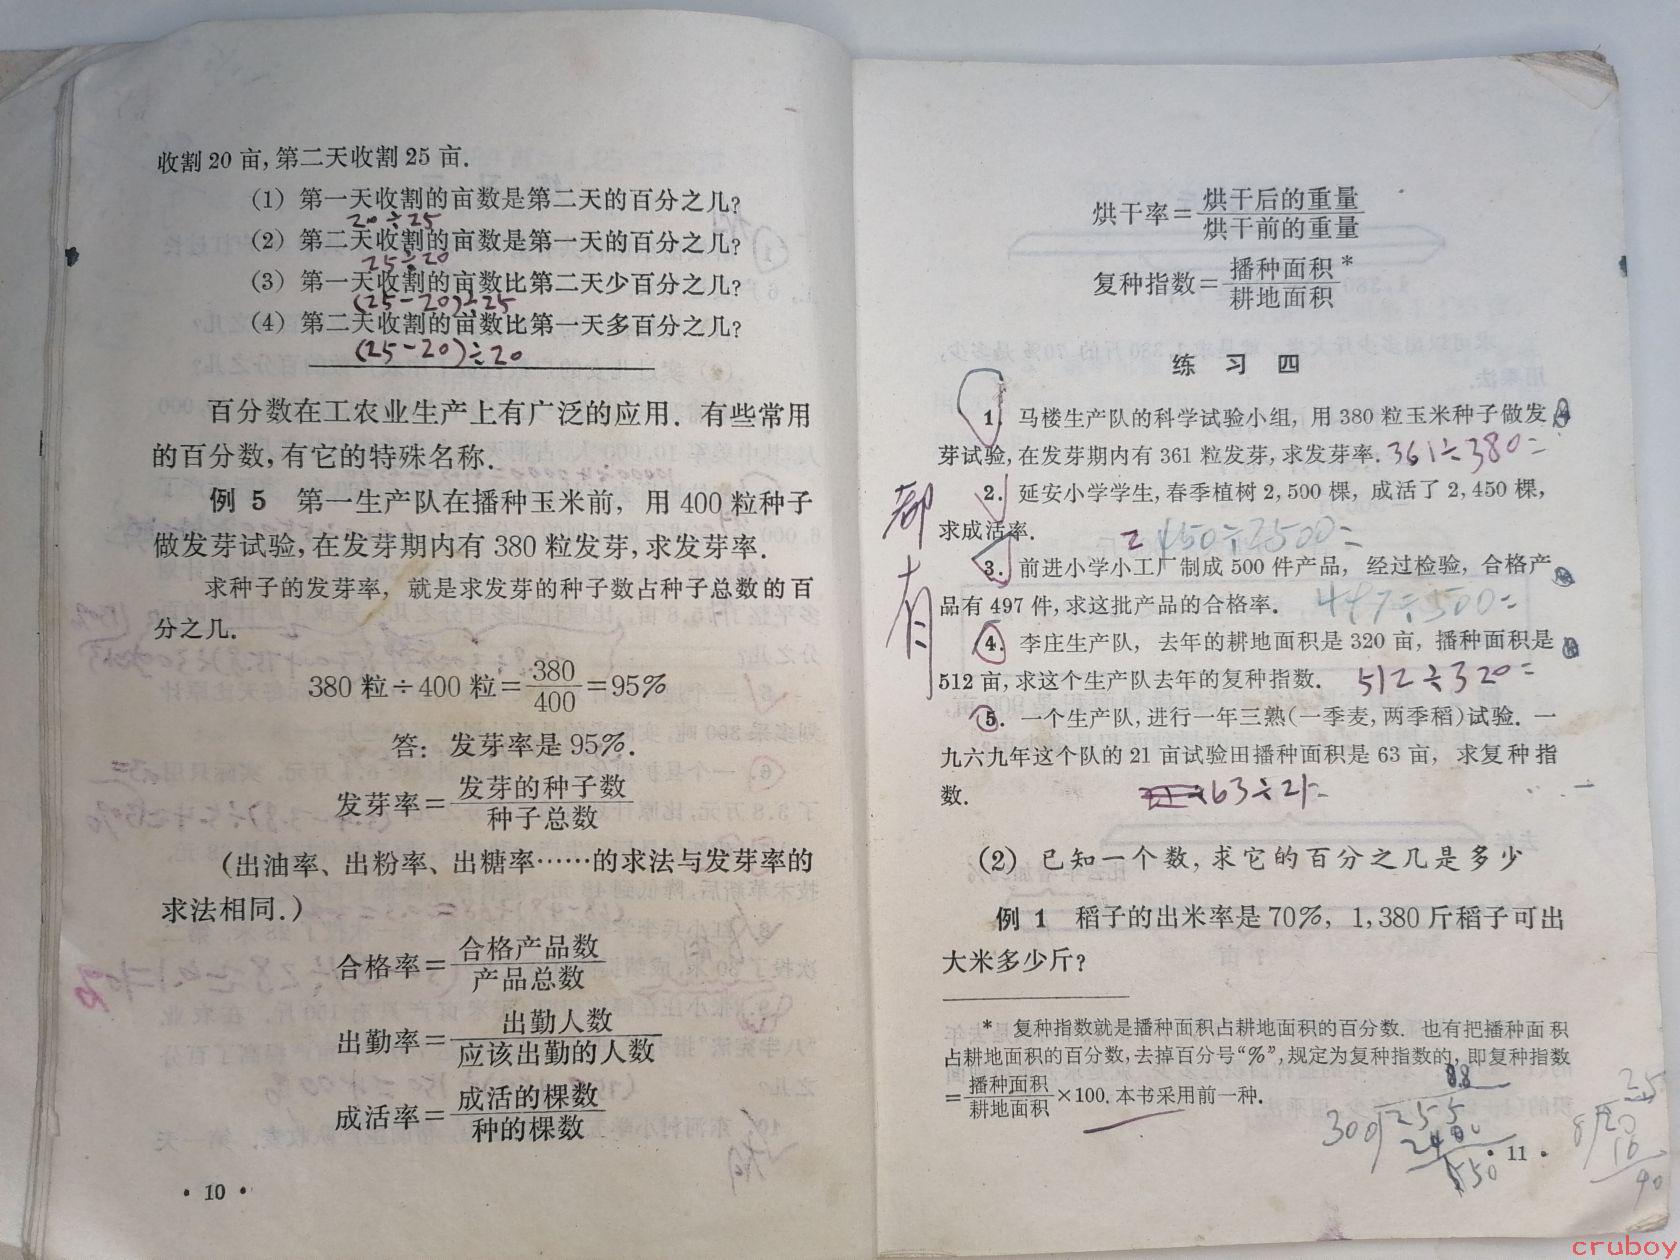 收割20亩,第二天收割25亩.
(1) 第一天收割的亩数是第二天的百分之几?
20÷25
(2) 第二天收割的亩数是第一天的百分之几?
25÷20
(3) 第一天收割的亩数比第二天少百分之几?
(25-20)÷25
(4) 第二天收割的亩数比第一天多百分之几?
(25-20)÷20
百分数在工农业生产上有广泛的应用. 有些常用
的百分数,有它的特殊名称.
例 5 第一生产队在播种玉米前, 用400粒种子
做发芽试验,在发芽期内有380粒发芽,求发芽率.
求种子的发芽率, 就是求发芽的种子数占种子总数的百
分之几.
380粒÷400粒=380/400=95%
答: 发芽率是95%.
发芽率=发芽的种子数/种子总数
(出油率、出粉率、出糖率……的求法与发芽率的
求法相同.)
合格率=合格产品数/产品总数
出勤率=出勤人数/应该出勤的人数
成活率=成活的棵数/种的棵数
· 10 ·
烘干率=烘干后的重量/烘干前的重量
复种指数=播种面积/耕地面积*
练 习 四
1. 马楼生产队的科学试验小组, 用380粒玉米种子做发
芽试验,在发芽期内有361粒发芽,求发芽率. 361÷380=
2. 延安小学学生,春季植树2,500棵, 成活了2,450棵,
求成活率. 2450÷2500=
3. 前进小学小工厂制成500件产品, 经过检验, 合格产
品有497件,求这批产品的合格率. 497÷500=
4. 李庄生产队, 去年的耕地面积是320亩, 播种面积是
512亩,求这个生产队去年的复种指数. 512÷320=
5. 一个生产队,进行一年三熟(一季麦,两季稻)试验. 一
九六九年这个队的21亩试验田播种面积是63亩, 求复种指
数. 63÷21=
都有
(2) 已知一个数,求它的百分之几是多少
例 1 稻子的出米率是70%, 1,380斤稻子可出
大米多少斤?
* 复种指数就是播种面积占耕地面积的百分数. 也有把播种面积
占耕地面积的百分数,去掉百分号“%”,规定为复种指数的, 即复种指数
=播种面积/耕地面积×100. 本书采用前一种.
· 11 ·
cruboy